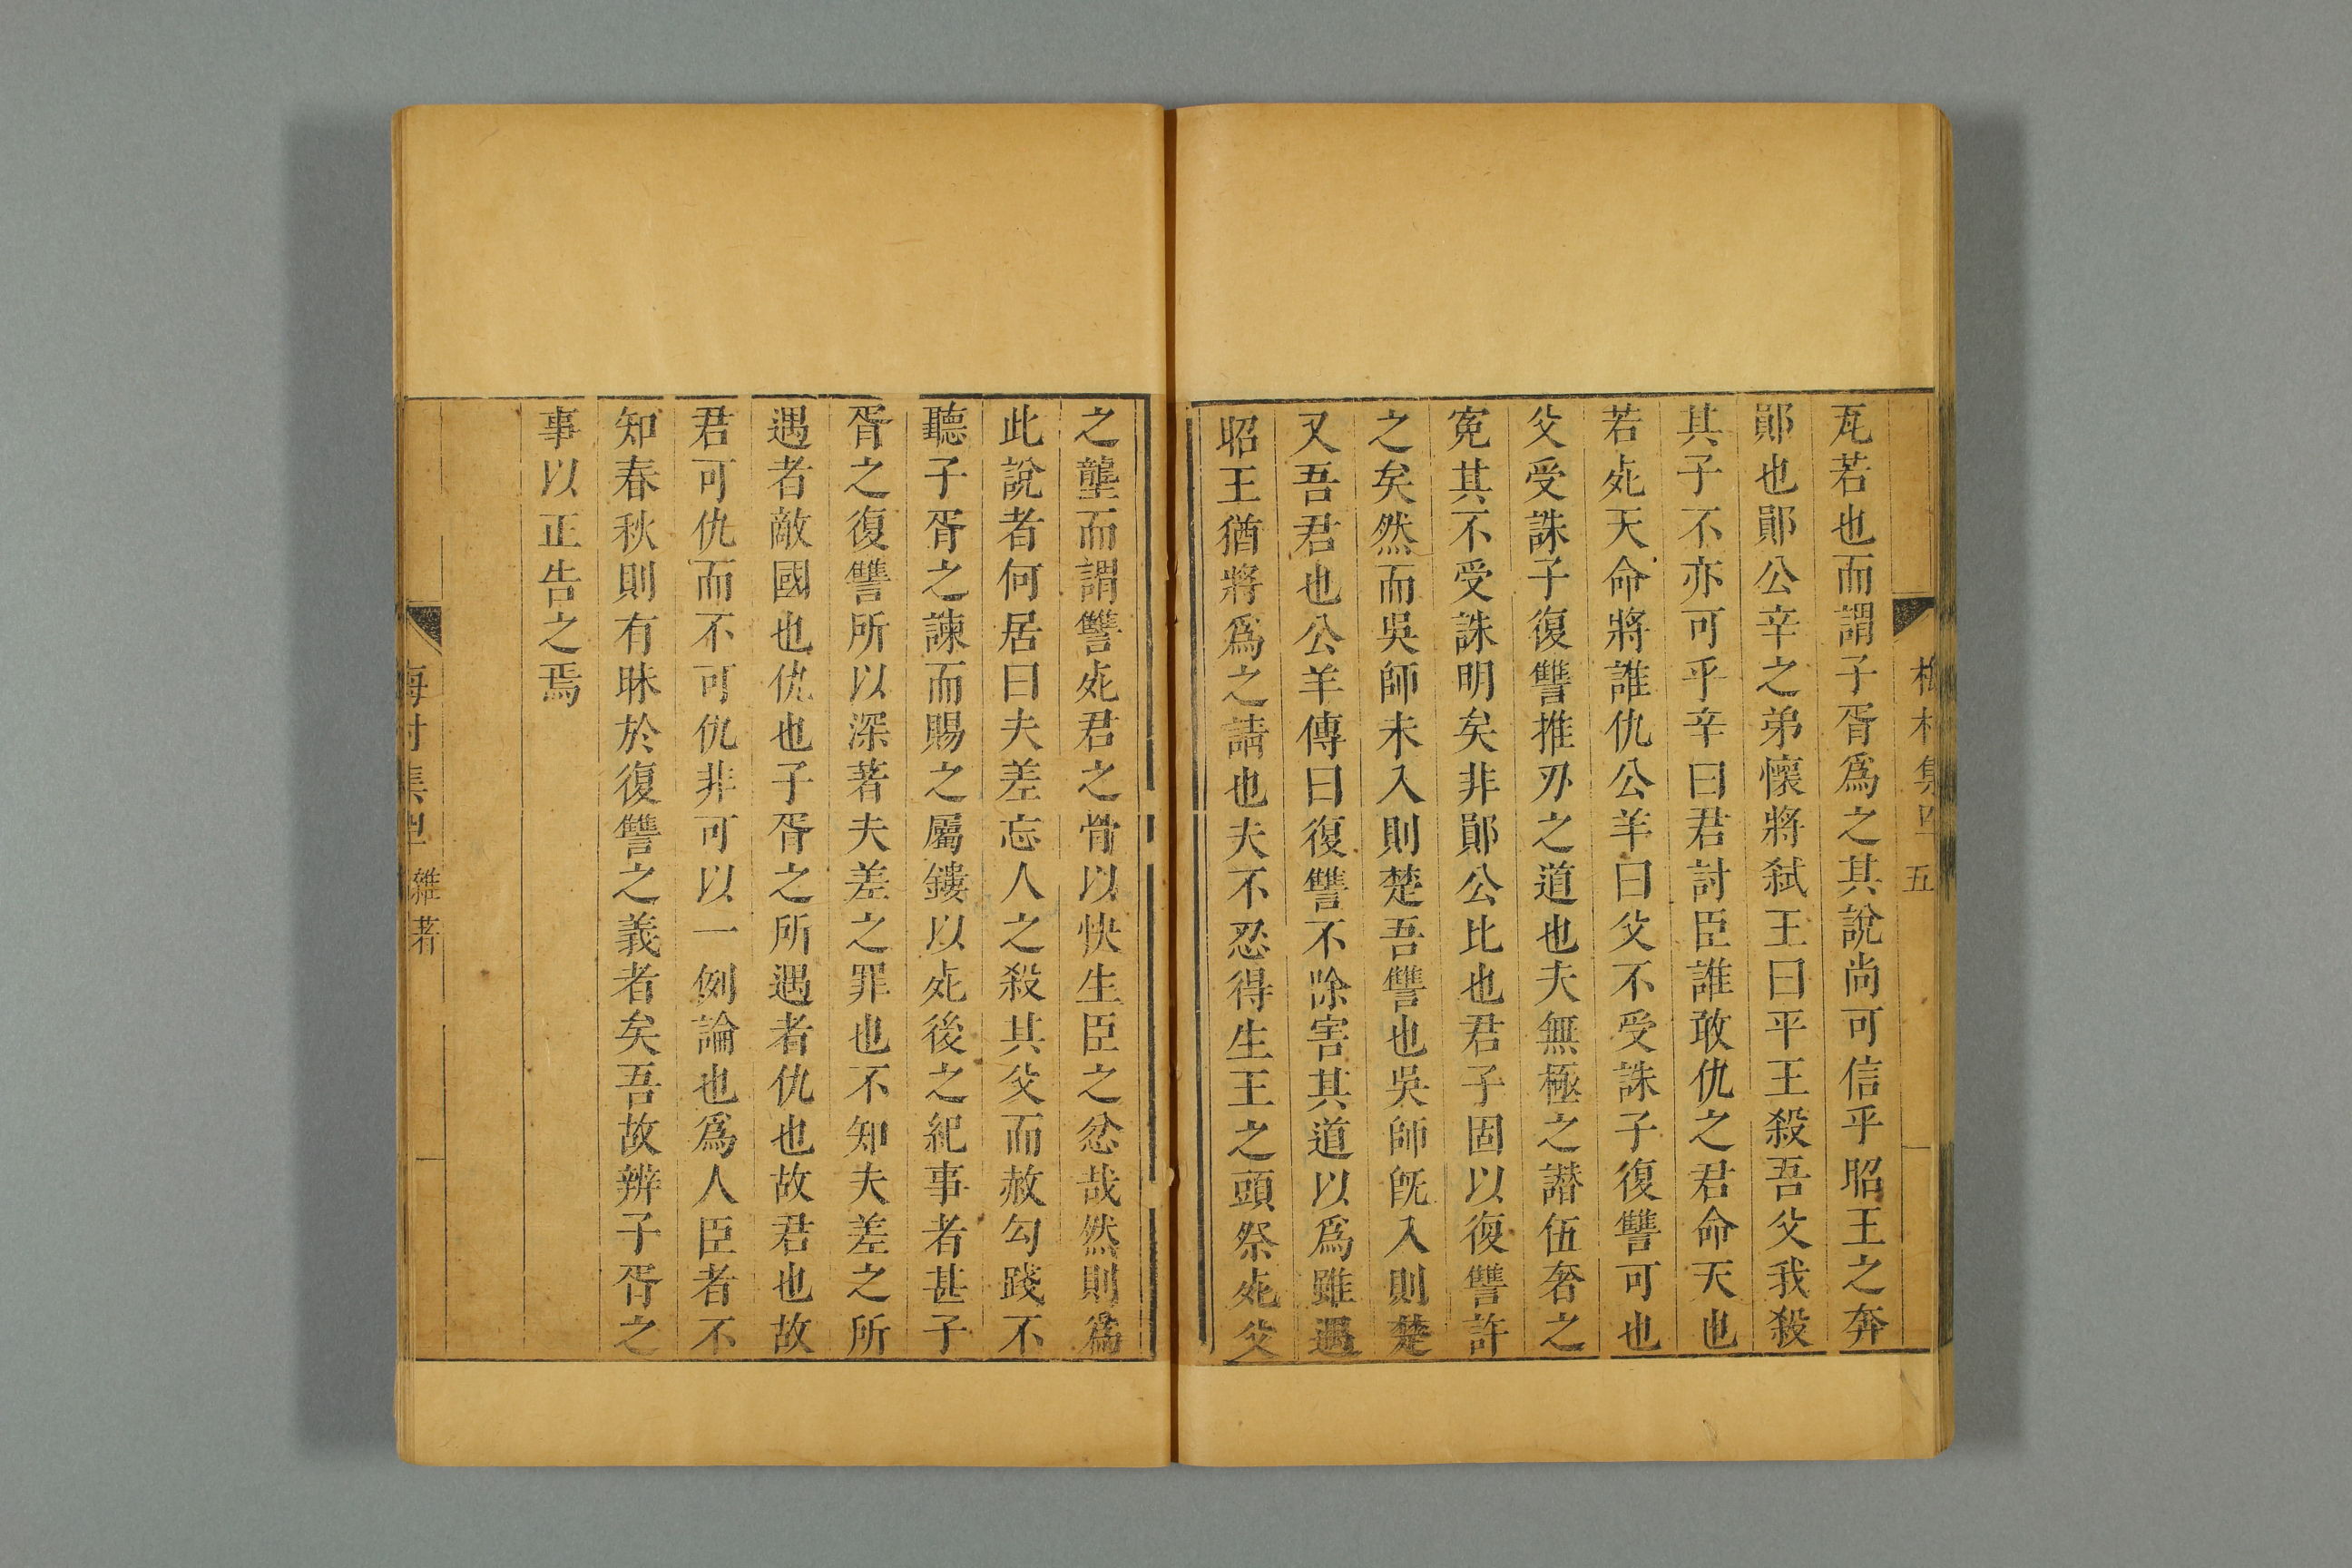 梅村集四 五
瓦若也而謂子胥爲之其說尚可信乎昭王之奔
鄖也鄖公辛之弟懷將弑王曰平王殺吾父我殺
其子不亦可乎辛曰君討臣誰敢仇之君命天也
若死天命將誰仇公羊曰父不受誅子復讐可也
父受誅子復讐推刃之道也夫無極之譖伍奢之
寃其不受誅明矣非鄖公比也君子固以復讐許
之矣然而吳師未入則楚吾讐也吳師旣入則楚
又吾君也公羊傳曰復讐不除害其道以爲雖遇
昭王猶將爲之請也夫不忍得生王之頭祭死父
之壟而謂讐死君之骨以快生臣之忿哉然則爲
此說者何居曰夫差忘人之殺其父而赦勾踐不
聽子胥之諫而賜之屬鏤以死後之紀事者甚子
胥之復讐所以深著夫差之罪也不知夫差之所
遇者敵國也仇也子胥之所遇者仇也故君也故
君可仇而不可仇非可以一例論也爲人臣者不
知春秋則有昧於復讐之義者矣吾故辨子胥之
事以正告之焉
梅村集四 雜著